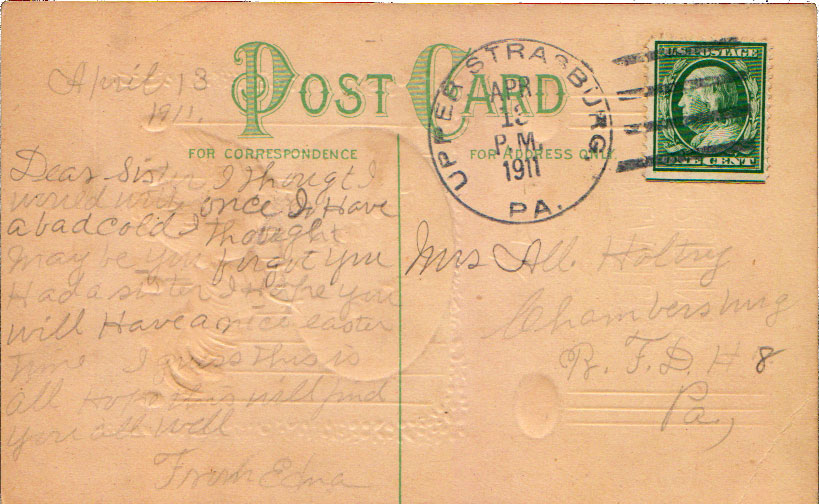 POST CARD
FOR CORRESPONDENCE
FOR ADDRESS ONLY
UPPER STRASBURG,
APR
13
P.M.
1911
PA.
U.S. POSTAGE
ONE CENT
April 13
1911.
Dear Sister I thougt I
would write once I Have
a bad cold I thought
may be you forgot you
Had a sister I Hope you
will Have a nice easter
time I guess this is
all Hope this will find
you all well
From Edna
Mrs All. Holtry.
Chambersburg
R. F. D. # 8
Pa,